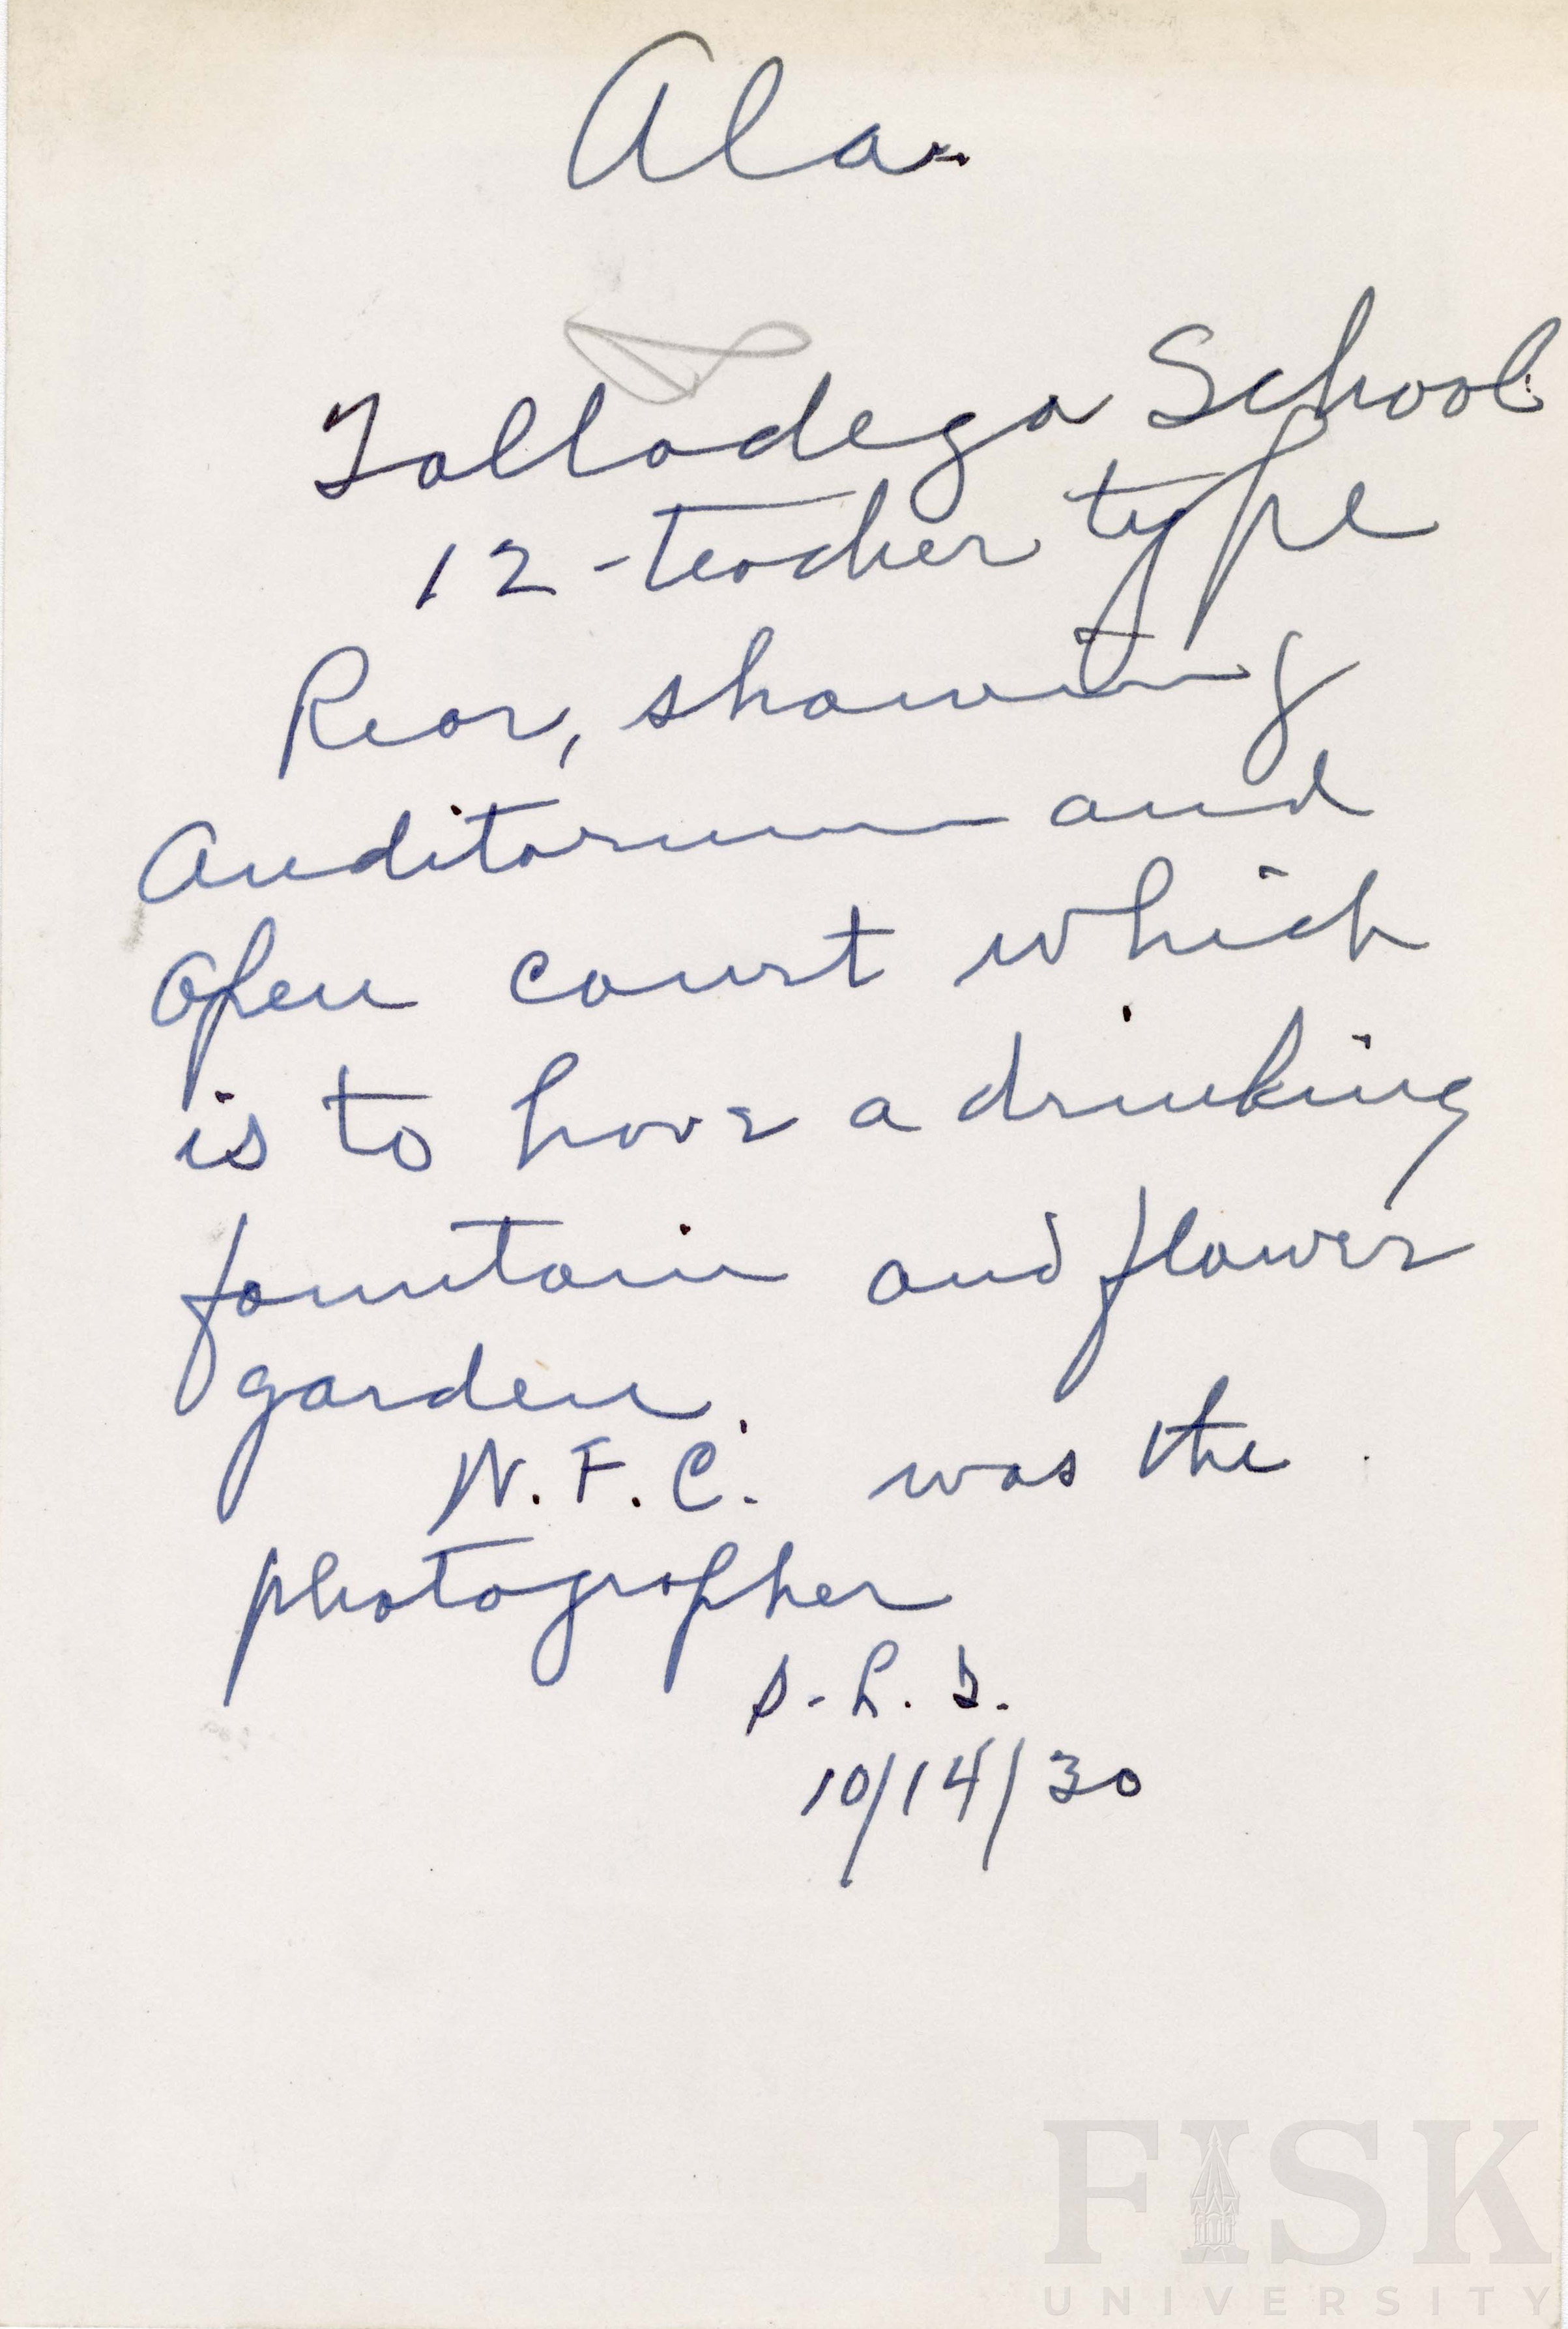 Ala.
Talladega School
12-teacher type
Rear, showing
Auditorium and
Open court which
is to have a drinking
fountain and flower
garden.
N.F.C. was the
photographer
S.L.S.
10/14/30
FISK
UNIVERSITY